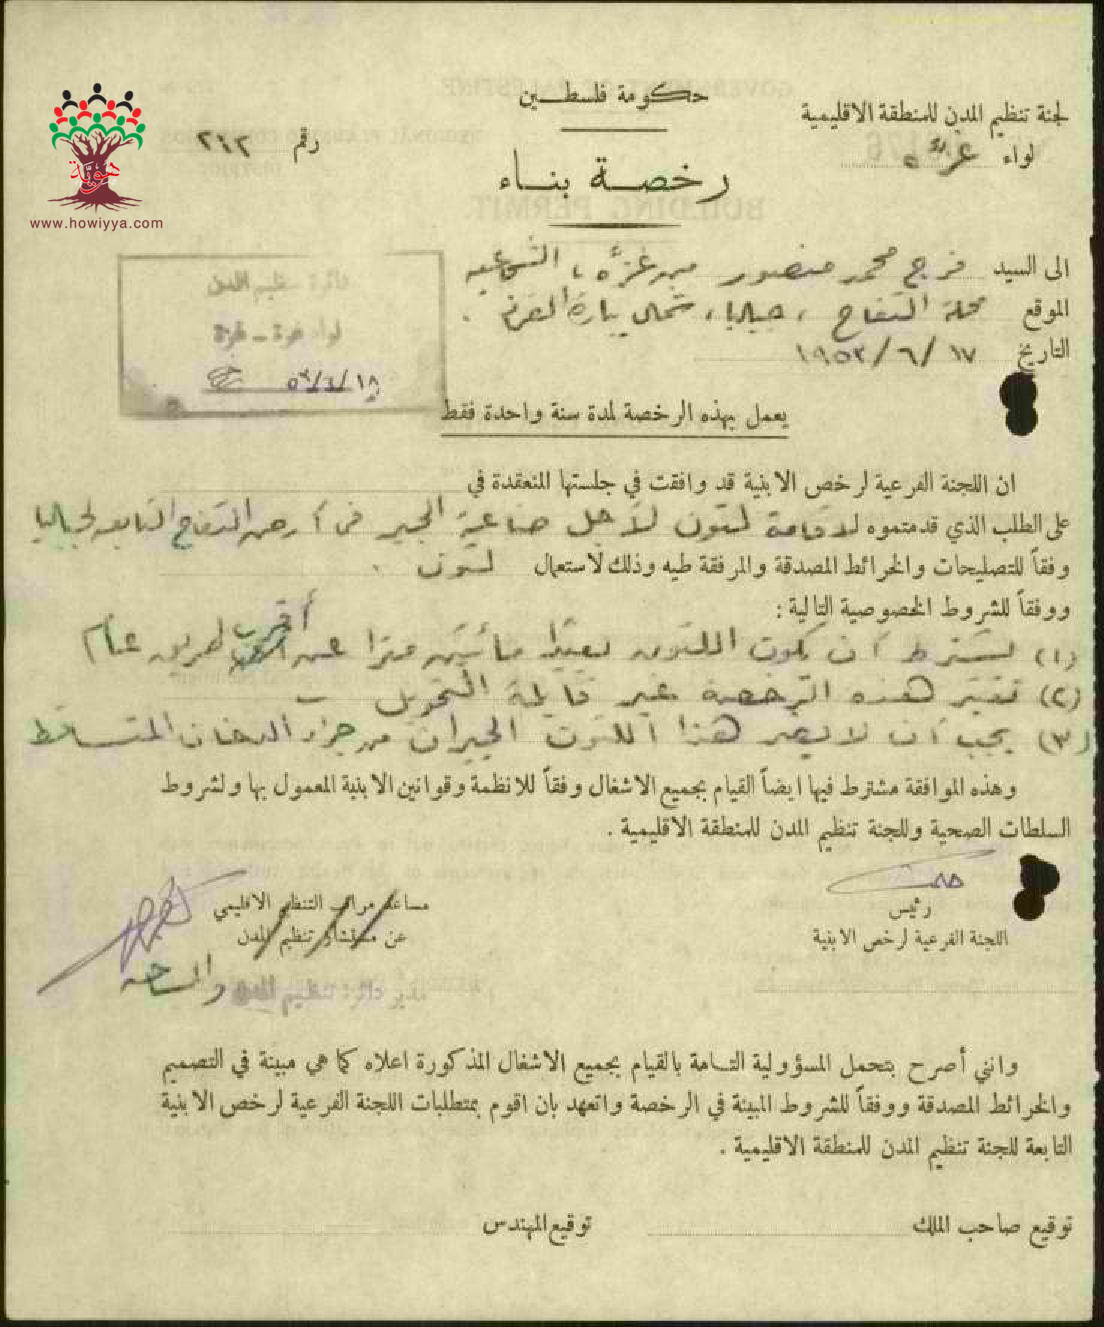 حكومة فلسطين
لجنة تنظيم المدن للمنطقة الاقليمية
لواء غزة
رقم ٢١٢
هوية
www.howiyya.com
رخصة بناء
الى السيد فرج محمد منصور من غزة، الشجاعيه
الموقع محلة التفاح، جباليا، شمالي بيارة الغزبز
التاريخ ١٧ / ٦ / ١٩٥٣
دائرة تنظيم المدن
لواء غزة - غزة
١٨/٦/٥٣
يعمل بهذه الرخصة لمدة سنة واحدة فقط
ان اللجنة الفرعية لرخص الابنية قد وافقت في جلستها المنعقدة في
على الطلب الذي قدمتموه لاقامة لتون لأجل صناعية الجير في أرض التفاح التابعه لجباليا
وفقاً للتصليحات والخرائط المصدقة والمرفقة طيه وذلك لاستعمال لتون .
ووفقاً للشروط الخصوصية التالية :
(١) يشترط أن يكون اللتون بعيدا مأتين مترا عن أقرب طريق عام
(٢) تعتبر هذه الرخصة غير قابلة التحويل
(٣) يجب أن لا يضر هذا اللتون الجيران من جراء الدخان المتساقط
وهذه الموافقة مشترط فيها ايضاً القيام بجميع الاشغال وفقاً للانظمة وقوانين الابنية المعمول بها ولشروط
السلطات الصحية وللجنة تنظيم المدن للمنطقة الاقليمية .
رئيس
اللجنة الفرعية لرخص الابنية
مساعد مراقب التنظيم الاقليمي
عن مستشار تنظيم المدن
مدير دائرة تنظيم المدن والمساحه
وانني أصرح بتحمل المسؤولية التامة بالقيام بجميع الاشغال المذكورة اعلاه كما هي مبينة في التصميم
والخرائط المصدقة ووفقاً للشروط المبينة في الرخصة واتعهد بان اقوم بمتطلبات اللجنة الفرعية لرخص الابنية
التابعة للجنة تنظيم المدن للمنطقة الاقليمية .
توقيع صاحب الملك
توقيع المهندس